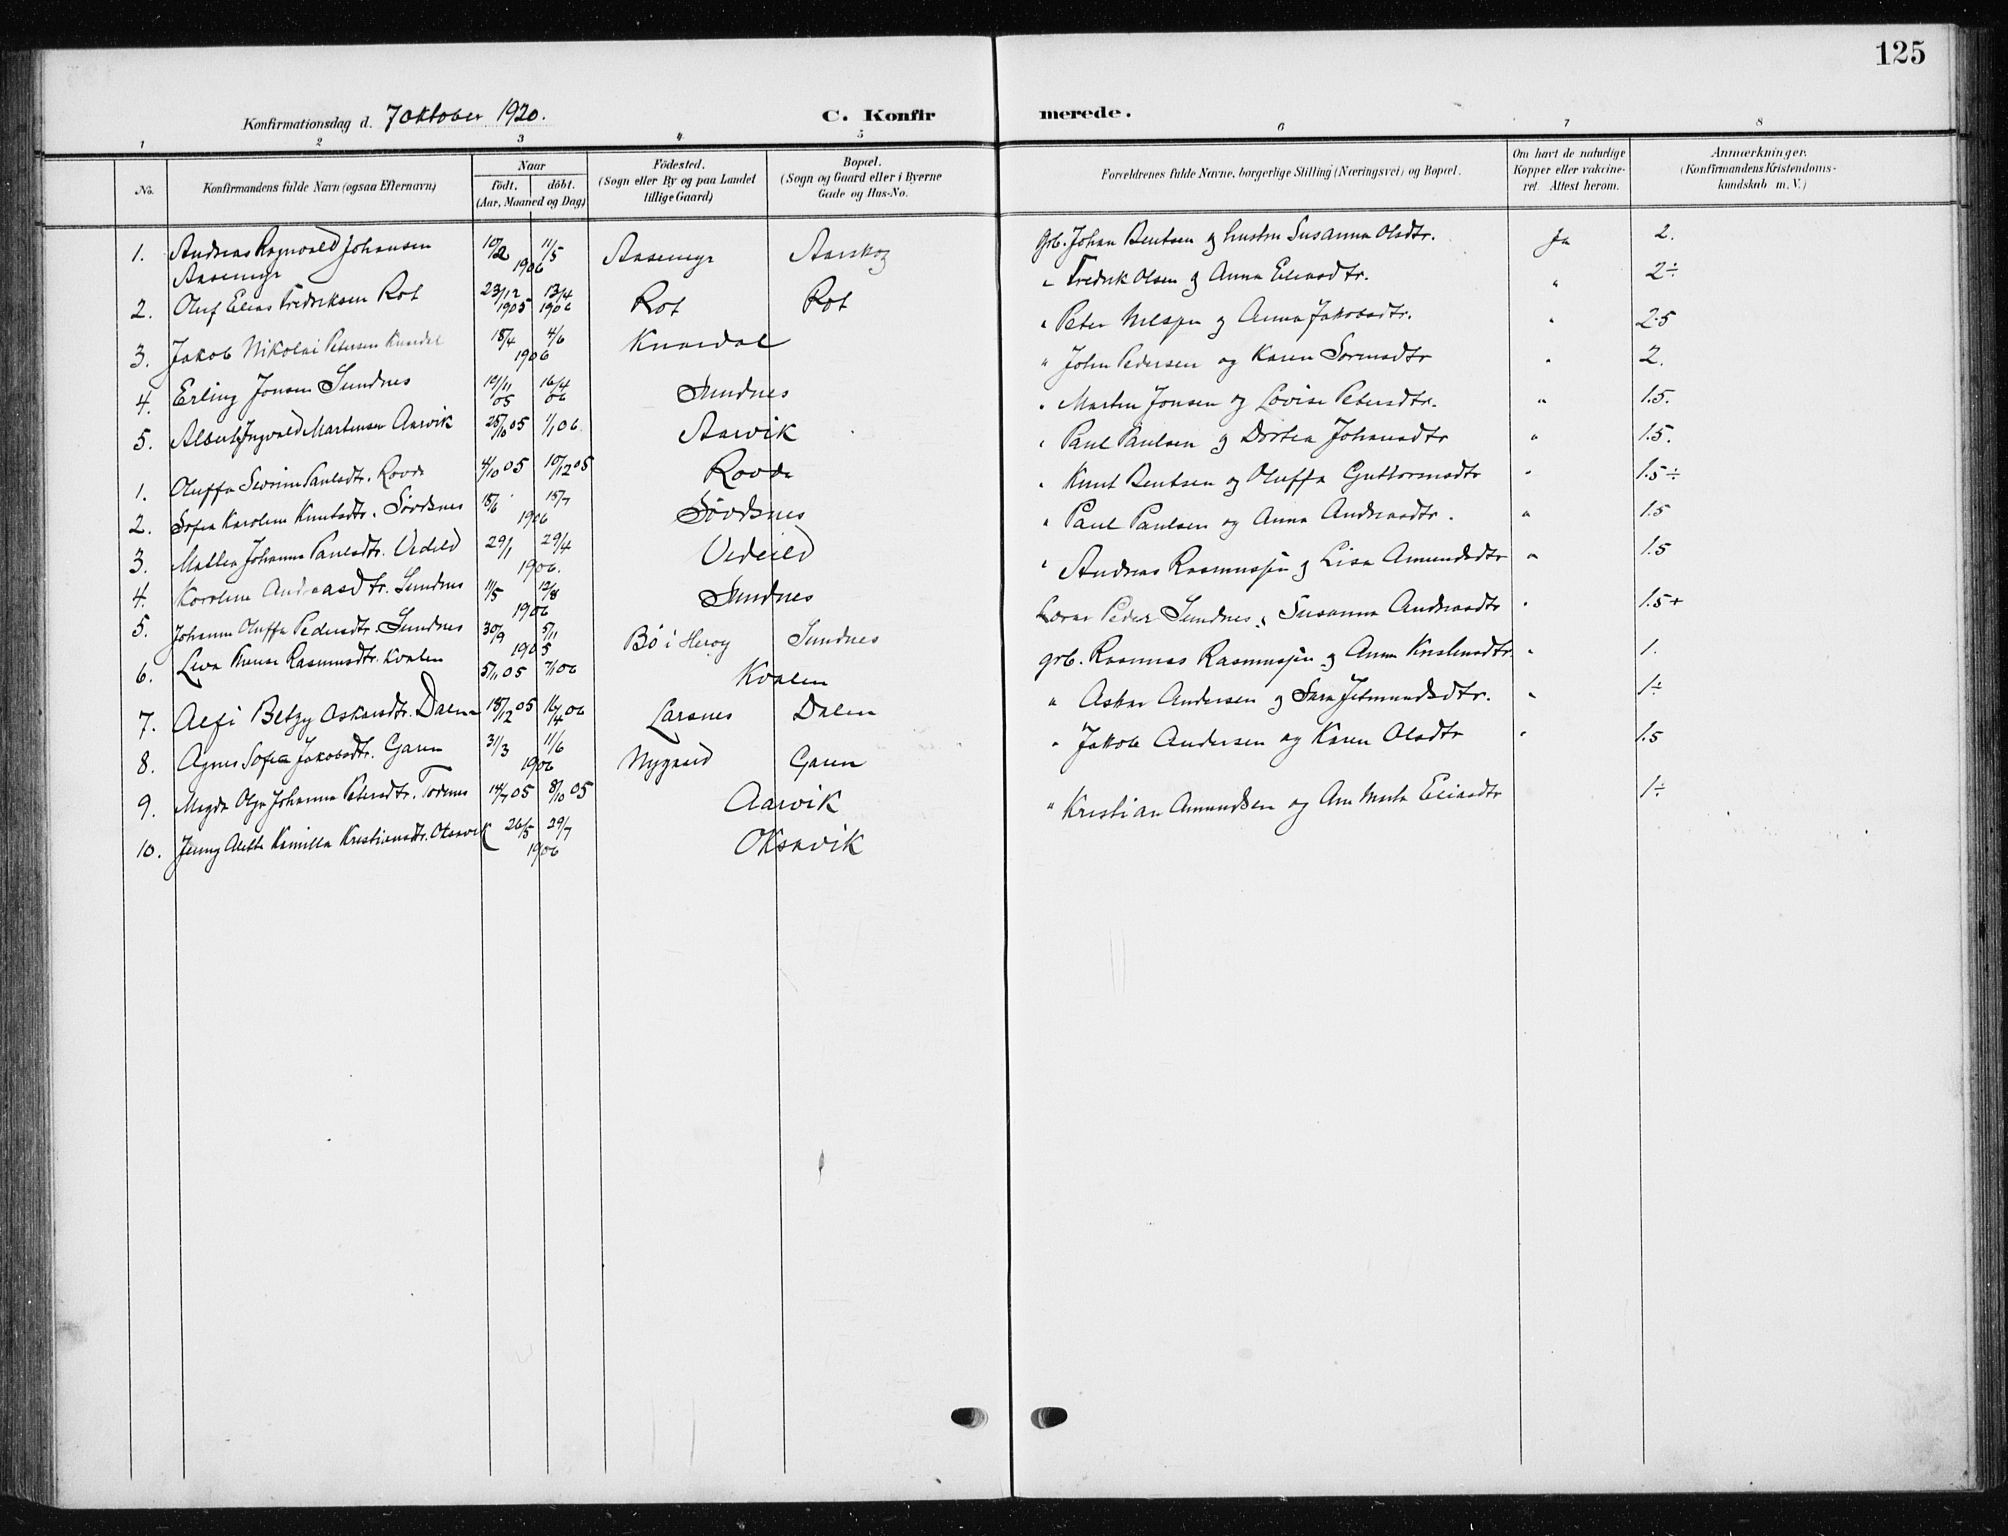 125
Konfirmationsdag d. 7 oktober 1920.
C. Konfirmerede.
1 2 3 4 5 6 7 8
No.
Konfirmandens fulde Navn (ogsaa Efternavn)
Naar
født. døbt.
(Aar, Maaned og Dag)
Fødested.
(Sogn eller By og paa Landet
tillige Gaard)
Bopæl.
(Sogn og Gaard eller i Byerne
Gade og Hus-No.
Forældrenes fulde Navne, borgerlige Stilling (Næringsvei) og Bopæl.
Om havt de naturlige
Kopper eller vakcine-
ret. Attest herom.
Anmærkninger.
(Konfirmandens Kristendoms-
kundskab m. V.)
1. Andreas Ragnvald Johansen 10/2 11/5 Aasemyr Aarskog grb. Johan Bentsen og hustru Susanna Olsdtr. Ja 2.
Aasemyr 1906
2. Oluf Elias Fredriksen Rot 23/12 1905 13/4 1906 Rot Rot " Fredrik Olsen og Anna Eliasdtr. " 2÷
3. Jakob Nikolai Petersen Knardal 18/4 4/6 1906 Knardal " Peter Nilssen og Anna Jakobsdtr. " 2.5
4. Erling Jonsen Sundnes 10/11 05 16/4 06 Sundnes " John Pedersen og Karen " 2.
5. Albert Ingvald Martensen Aarvik 25/10 05 1/1 06 Aarvik " Marten Jonsen og Lovise Petersdtr. " 1.5.
1. Oluffa Severine Paulsdtr. Rovde 4/10 05 10/12 05 Rovde " Paul Paulsen og Dortea Johansdtr " 1.5.
2. Sofia Karoline Knutsdtr. Sørdsnes 18/6 15/7 1906 Sørdsnes " Knut Bentsen og Oluffa Guttormsdtr " 1.5÷
3. Mallea Johanna Paulsdtr. Vedeld 29/1 29/4 1906. Vedeild " Paul Paulsen og Anna Andreasdtr. " 1.5
4. Karoline Andreasdtr. Sundnes 11/5 12/8 1906 Sundnes " Andreas Rasmussen og Lisa Amundsdtr " 1.5
5. Johanne Oluffa Pedersdtr. Sundnes 30/9 5/11 1905 Bø i Herøy Sundnes Lærer Peder Sundnes, Susanna Andreasdtr " 1.5+
6. Rasmusdtr. Kvalen 5/11 05 7/1 06 Kvalen grb. Rasmus Rasmussen og Anna Kristensdtr. " 1.
7. Alfi Betzy Oskarsdtr. Dalen 18/12 05 16/4 06 Larsnes Dalen " Askar Andersen og Sara Jetmundsdtr. " 1÷
8. Agnes Sofie Jakobsdtr. Garen 31/3 11/6 1906 Nygaard Garen " Jakob Andersen og Karen Olsdtr " 1.5
9. Magda Olga Johanna Petersdtr. 14/7 05 8/10 05 Aarvik
10. Jenny Alette Kamilla Kristiansdtr. Oksavik 26/5 29/7 1906 Oksavik " Kristian Amundsen og Ane Marta Eliasdtr 1÷